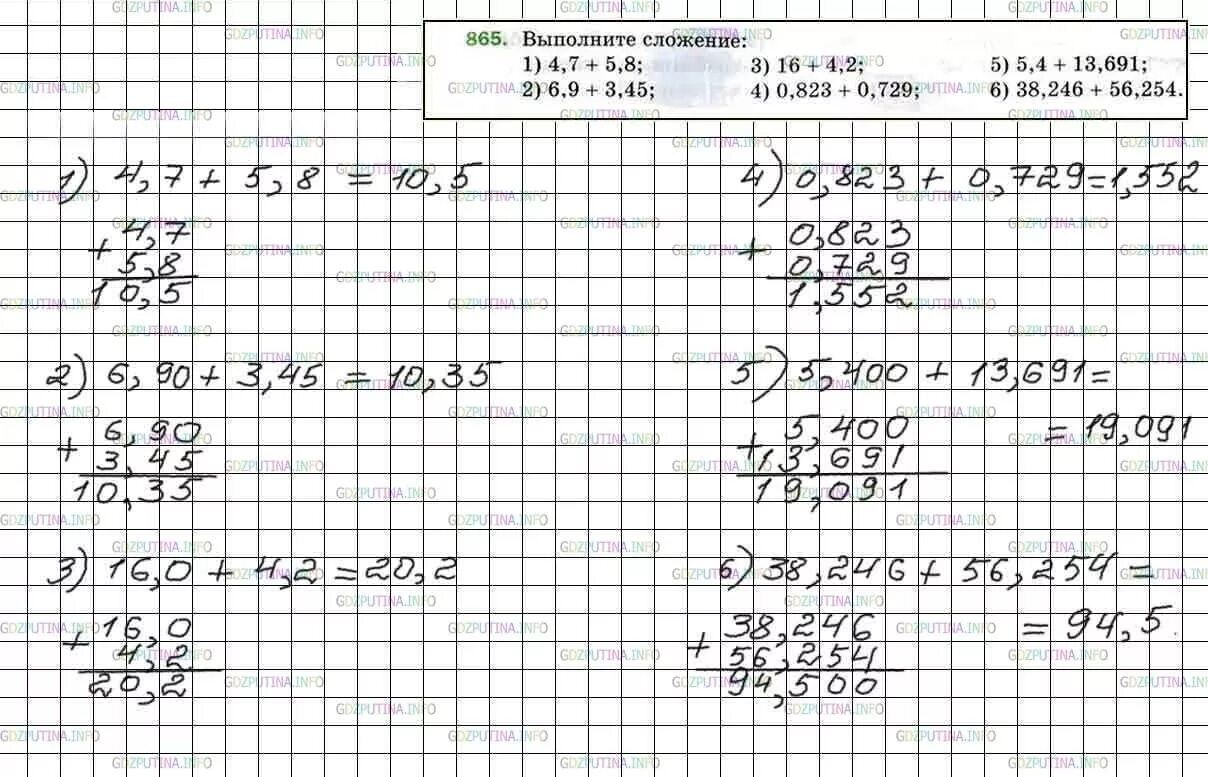 865. Выполните сложение:
1) 4,7 + 5,8; 3) 16 + 4,2; 5) 5,4 + 13,691;
2) 6,9 + 3,45; 4) 0,823 + 0,729; 6) 38,246 + 56,254.
1) 4,7 + 5,8 = 10,5
+ 4,7
5,8
10,5
2) 6,90 + 3,45 = 10,35
+ 6,90
3,45
10,35
3) 16,0 + 4,2 = 20,2
+ 16,0
4,2
20,2
4) 0,823 + 0,729 = 1,552
+ 0,823
0,729
1,552
5) 5,400 + 13,691 =
= 19,091
+ 5,400
13,691
19,091
6) 38,246 + 56,254 =
= 94,5.
+ 38,246
56,254
94,500
GDZPUTINA.INFO